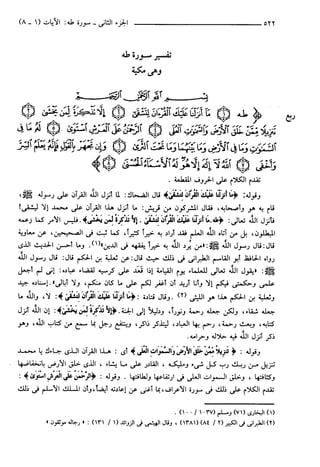 ٥٢٢ الجزء الثانى - سورة طه: الآيات (١ - ٨)
تفسير سورة طه
وهى مكية
بسم الله الرحمن الرحيم
ربع
﴿ طه مَا أَنزَلْنَا عَلَيْكَ الْقُرْآنَ لِتَشْقَىٰ إِلَّا تَذْكِرَةً لِّمَن يَخْشَىٰ
تَنزِيلًا مِّمَّنْ خَلَقَ الْأَرْضَ وَالسَّمَاوَاتِ الْعُلَى الرَّحْمَٰنُ عَلَى الْعَرْشِ اسْتَوَىٰ لَهُ مَا فِي
السَّمَاوَاتِ وَمَا فِي الْأَرْضِ وَمَا بَيْنَهُمَا وَمَا تَحْتَ الثَّرَىٰ وَإِن تَجْهَرْ بِالْقَوْلِ فَإِنَّهُ يَعْلَمُ السِّرَّ
وَأَخْفَى اللَّهُ لَا إِلَٰهَ إِلَّا هُوَ لَهُ الْأَسْمَاءُ الْحُسْنَىٰ ﴾
تقدم الكلام على الحروف المقطعة .
وقوله: ﴿مَا أَنزَلْنَا عَلَيْكَ الْقُرْآنَ لِتَشْقَىٰ﴾ قال الضحاك: لما أنزل الله القرآن على رسوله ﷺ،
قام به هو وأصحابه، فقال المشركون من قريش: ما أنزل هذا القرآن على محمد إلا ليشقى!
فأنزل الله تعالى: ﴿طه. مَا أَنزَلْنَا عَلَيْكَ الْقُرْآنَ لِتَشْقَىٰ. إِلَّا تَذْكِرَةً لِّمَن يَخْشَىٰ﴾. فليس الأمر كما زعمه
المبطلون، بل من آتاه الله العلم فقد أراد به خيراً كثيراً، كما ثبت فى الصحيحين، عن معاوية
قال: قال رسول الله ﷺ: «من يُرد الله به خيراً يفقهه فى الدين»(١). وما أحسن الحديث الذى
رواه الحافظ أبو القاسم الطبرانى فى ذلك حيث قال: عن ثعلبة بن الحكم قال: قال رسول الله
ﷺ: «يقول الله تعالى للعلماء يوم القيامة إذا قعد على كرسيه لقضاء عباده: إنى لم أجعل
علمى وحكمتى فيكم إلا وأنا أريد أن أغفر لكم على ما كان منكم، ولا أبالى». إسناده جيد
وثعلبة بن الحكم هذا هو الليثى (٢). وقال قتادة: ﴿مَا أَنزَلْنَا عَلَيْكَ الْقُرْآنَ لِتَشْقَىٰ﴾: لا، والله ما
جعله شقاء، ولكن جعله رحمة ونوراً، ودليلاً إلى الجنة. ﴿إِلَّا تَذْكِرَةً لِّمَن يَخْشَىٰ﴾: إن الله أنزل
كتابه، وبعث رحمة، رحم بها العباد، ليتذكر ذاكر، وينتفع رجل بما سمع من كتاب الله، وهو
ذكر أنزل الله فيه حلاله وحرامه.
وقوله: ﴿ تَنزِيلًا مِّمَّنْ خَلَقَ الْأَرْضَ وَالسَّمَاوَاتِ الْعُلَى ﴾ أى: هذا القرآن الذى جاءك يا محمد
تنزيل من ربك رب كل شىء ومليكه، القادر على ما يشاء، الذى خلق الأرض بانخفاضها
وكثافتها، وخلق السموات العلى فى ارتفاعها ولطافتها. وقوله: ﴿الرَّحْمَٰنُ عَلَى الْعَرْشِ اسْتَوَىٰ﴾ :
تقدم الكلام على ذلك فى سورة الأعراف، بما أغنى عن إعادته أيضاً، وأن المسلك الأسلم فى ذلك
(١) البخارى (٧١) ومسلم (١٠٣٧ / ١٠٠) .
(٢) الطبرانى فى الكبير (٢ / ٨٤) (١٣٨١) ، وقال الهيثمى فى الزوائد (١ / ١٣١): « رجاله موثقون »